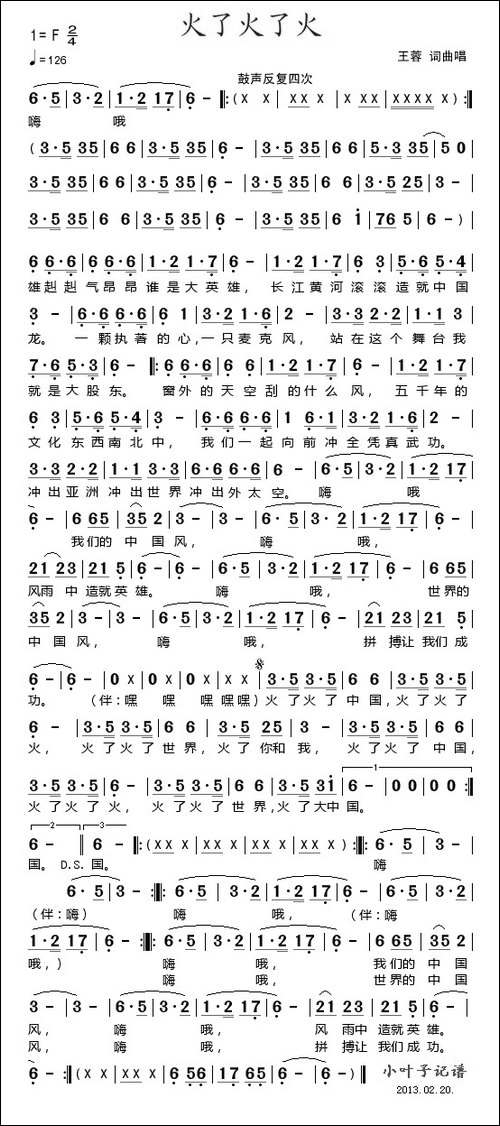 火了火了火
1= F 2/4
♩=126
王蓉 词曲唱
鼓声反复四次
6·5|3·2|1·2 17|6 -‖:(X X|XX X|X XX|XXXX X):‖
嗨 哦
(3·5 35|6 6|3·5 35|6 -|3·5 35|6 6|5·3 35|5 0
3·5 35|6 6|3·5 35|6 -|3·5 35|6 6|3·5 25|3 -|
3·5 35|6 6|3·5 35|6 -|3·5 35|6 i|76 5|6 -)|
6 6·6|6 6·6|1·2 1·7|6 -|1·2 1·7|6 3|5·6 5·4|
雄赳赳气昂昂谁是大英雄，长江黄河滚滚造就中国
3 -|6·6 6·6|6 6·6|1·2 1·7|6 -|1·2 1·7|6 1|1 3|
龙。一颗执著的心,一只麦克风，站在这个舞台我
7·6 5·3|6 -‖:6 6·6|6 6·6|1·2 1·7|6 -|1·2 1·7|
就是大股东。窗外的天空刮的什么风，五千年的
6 3|5·6 5·4|3 -|6·6 6·6|1 6·1|3 1·3|2 1·7|6 -|
文化东西南北中，我们一起向前冲全凭真武功。
3·3 2·2|1·1 3·3|6·6 6·6|6 -|6·5|3·2|1·2 17|
冲出亚洲冲出世界冲出外太空。嗨 哦
6 -|6 65|35 2|3 -|3 -|6·5|3·2|1·2 17|6 -|
我们的中国风，嗨 哦，
21 23|21 5|6 -|6 -|6·5|3·2|1·2 17|6 -|6 65|
风雨中造就英雄。嗨 哦，世界的
35 2|3 -|3 -|6·5|3·2|1·2 17|6 -|21 23|21 5|
中国风，嗨 哦，拼搏让我们成
6 -|6 -|0 X|0 X|0 X|X X|3·5 3·5|6 6|3·5 3·5|
功。(伴:嘿 嘿 嘿嘿嘿)火了火了中国,火了火了
6 -|3·5 3·5|6 6|3·5 2·5|3 -|3·5 3·5|6 6|
火，火了火了世界,火了你和我，火了火了中国，
3·5 3·5|6 -|3·5 3·5|6 6|3·5 3i|6 -|0 0|0 0:‖
火了火了火，火了火了世界,火了大中国。
6 -‖6 -‖:(XX X|XX X|XX X|XX X):‖:6·5|3 -|
国。D.S.国。嗨
6·5|3 -:‖:6·5|3·2|1·2 17|6 -|6·5|3·2|
(伴:嗨) 嗨 哦，(伴:嗨
1·2 17|6 -:‖:6·5|3·2|1·2 17|6 -|6 65|35 2|
哦,) 嗨 哦，我们的中国
嗨 哦，世界的中国
3 -|3 -|6·5|3·2|1·2 17|6 -|21 23|21 5|6 -|
风，嗨 哦，风雨中造就英雄。
风，嗨 哦，拼搏让我们成功。
6 -:‖(X X|XX X|6 56|56 17|6 -|6 -)‖
小叶子记谱
2013.02.20.